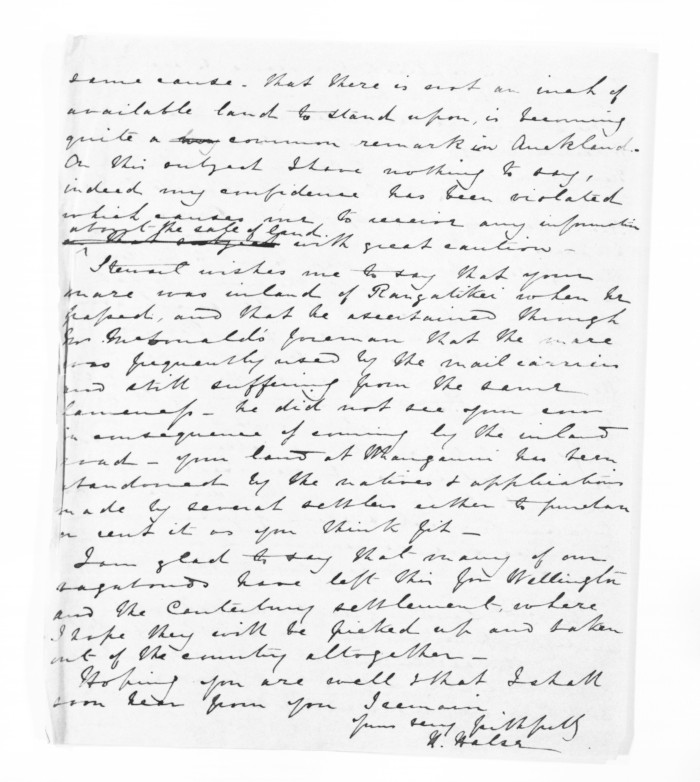 same cause - that there is not an inch of
available land to stand upon, is becoming
quite a common remark in Auckland. -
On this subject I have nothing to say,
indeed my confidence has been violated
which causes me to receive any information
about the sale of land
with great caution -
Stewart wishes me to say that your
mare was inland of Rangatikei when he
passed, and that he ascertained through
Mr. McDonald's foreman that the mare
was frequently used by the mail carriers
and still suffering from the same
lameness - he did not see your cow
in consequence of coming by the inland
road - your land at Wanganui has been
abandoned by the natives & applications
made by several settlers either to purchase
or rent it as you think fit -
I am glad to say that many of our
vagabonds have left this for Wellington
and the Canterbury settlement, where
I hope they will be picked up and taken
out of the country altogether -
Hoping you are well & that I shall
soon hear from you I remain
yours very faithfully
H. Halse